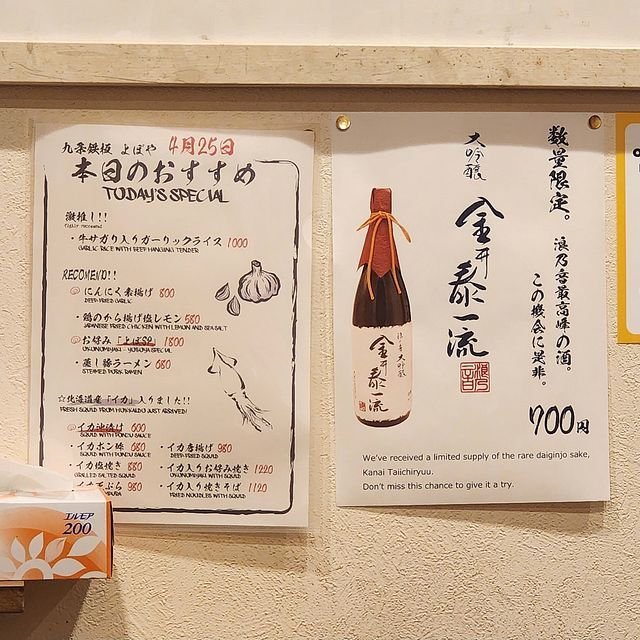 九条鉄板 よぼや 4月25日
本日のおすすめ
TODAY'S SPECIAL
激推し!!
・牛サガリ入りガーリックライス 1000
GARLIC RICE WITH BEEF HANGING TENDER
RECOMEND!!
にんにく素揚げ 800
DEEP FRIED GARLIC
・鶏のから揚げ塩レモン 580
JAPANESE FRIED CHICKEN WITH LEMON AND SEA SALT
お好み「よぼSP」 1800
OKONOMIYAKI - YOBOYA SPECIAL
・蒸し豚ラーメン 680
STEAMED PORK RAMEN
☆北海道産「イカ」入りました!!
FRESH SQUID FROM HOKKAIDO JUST ARRIVED!
イカ沖漬け 600
・イカポン酢 680
SQUID WITH PONZU SAUCE
・イカ塩焼き 880
GRILLED SALTED SQUID
ぷら 980
・イカ唐揚げ 980
DEEP FRIED SQUID
・イカ入りお好み焼き 1220
OKONOMIYAKI WITH SQUID
・イカ入り焼きそば 1120
FRIED NOODLES WITH SQUID
エルモア
200
数量限定。
浪乃音最高峰の酒。
この機会に是非。
大吟醸
金井泰一流
浪乃音
大吟醸
金井泰一流
700円
We've received a limited supply of the rare daiginjo sake,
Kanai Taiichiryuu.
Don't miss this chance to give it a try.